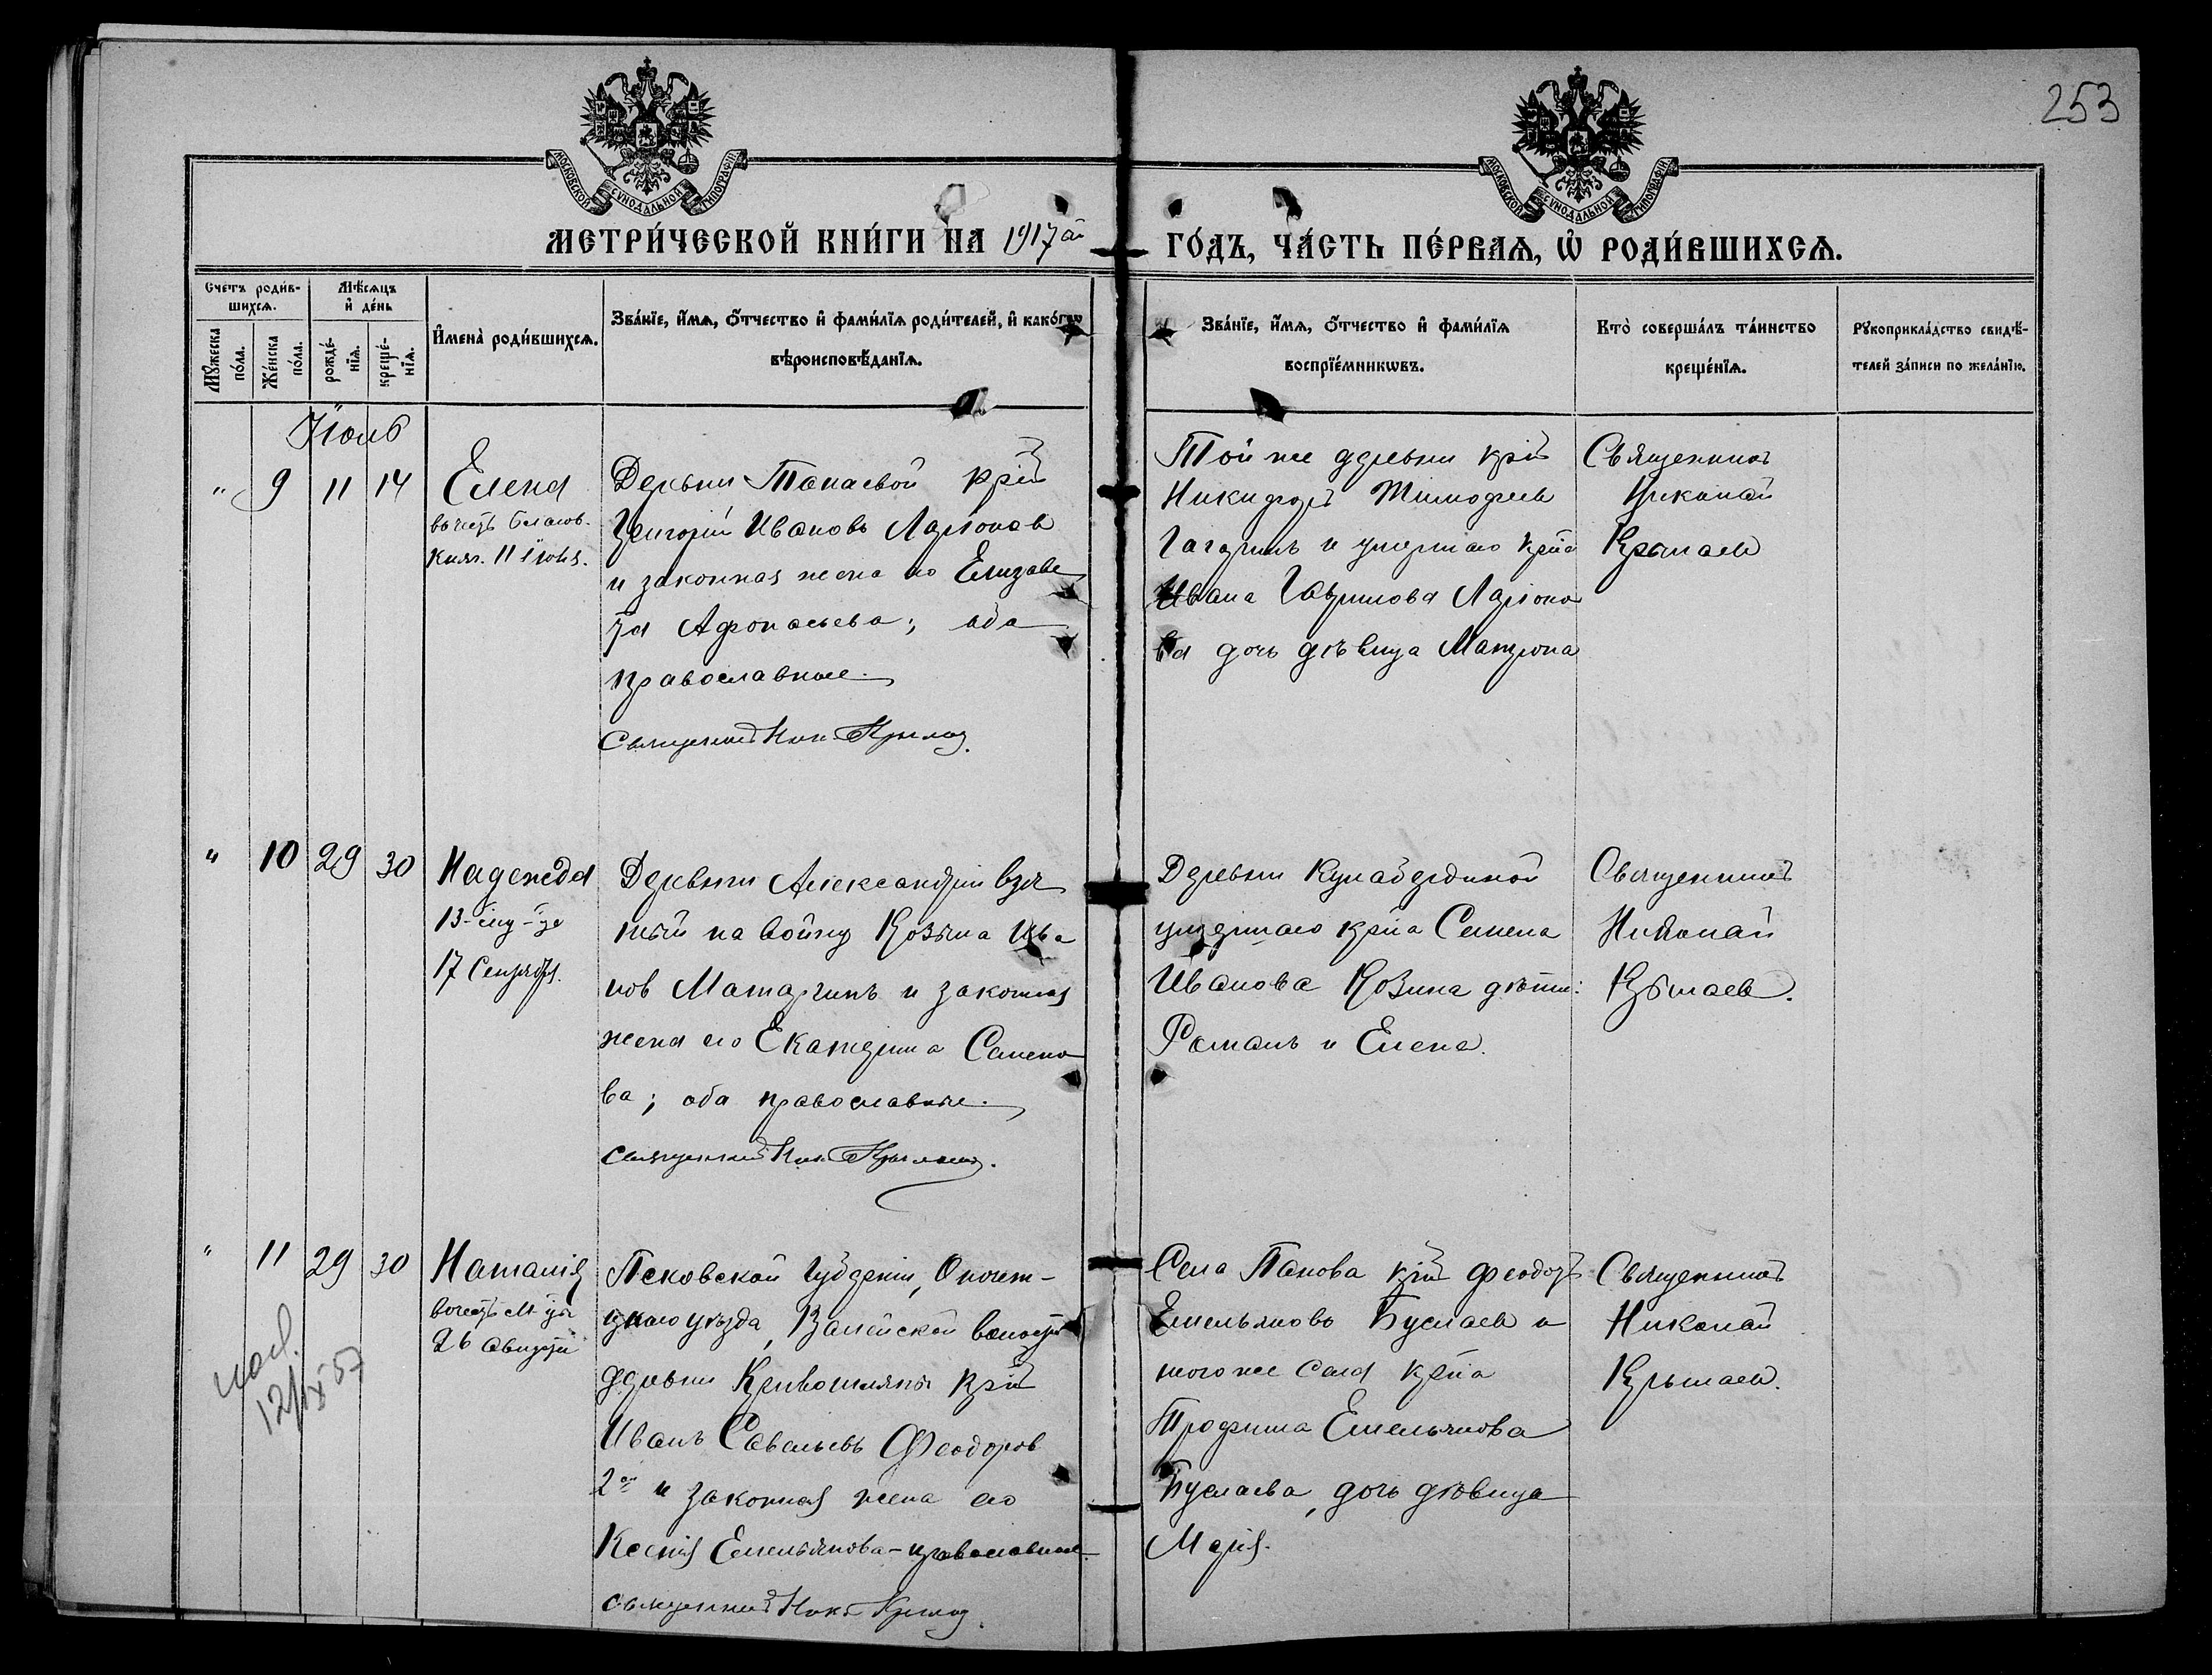 253
МОСКОВСКОЙ СѴНОДАЛЬНОЙ ТИПОГРАФІИ.
МОСКОВСКОЙ СѴНОДАЛЬНОЙ ТИПОГРАФІИ.
МЕТРИ́ЧЕСКОЙ КНИ́ГИ НА 1917 й ГО́ДЪ, ЧА́СТЬ ПЕ́РВАѦ, Ѡ҆ РОДИ́ВШИХСѦ.
Сче́тъ роди́в-
шихсѧ.
Мꙋ́жеска по́ла.
Же́нска по́ла.
Мѣ́сѧцъ
и҆ де́нь
рожде́-нїѧ.
креще́-нїѧ.
И҆мена̀ роди́вшихсѧ.
Зва́нїе, и҆́мѧ, ѻ҆́тчество и҆ фами́лїѧ роди́телей, и҆ како́гѡ
вѣроисповѣ́данїѧ.
Зва́нїе, и҆́мѧ, ѻ҆́тчество и҆ фами́лїѧ
воспрїе́мникѡвъ.
Кто̀ соверша́лъ та́инство
креще́нїѧ.
Рꙋкоприкла́дство свидѣ́-
телей за́писи по жела́нїю.
Іюль
" 9 11 14 Елена
въ честь благов.
княг. 11 Іюля.
Деревни Танаевой кр-нъ
Григорій Ивановъ Ларіонов
и законная жена его Елизаве
та Афонасьева; оба
православные.
Священникъ Ник. Крылов.
Той же деревни кр-нъ
Никифоръ Тимофеев
Гагаринъ и умершаго кр-на
Ивана Гаврилова Ларіоно
ва дочь дѣвица Матрона
Священникъ
Николай
Крылаев
" 10 29 30 Надежда
17 Сентября.
Деревни Александріи взя
тый на войну Козьма Ива
нов Матаргинъ и законная
жена его Екатерина Семено
ва; оба православные.
Священникъ Ник. Крылов.
Деревни Кулабердиной
умершаго кр-на Семена
Иванова Козина дѣти:
Романъ и Елена.
Священникъ
Николай
Крылаев.
" 11 29 30 Наталія
въ честь м-цы
26 Августа
12/IX 57
Псковской Губерніи, Опочет-
цкаго уѣзда, волости
деревни кр-нъ
Иванъ Савельевъ Феодоров
2й и законная жена его
Ксенія Емельянова - православные.
Священникъ Ник. Крылов.
Села Танова кр-нъ Феодоръ
Емельяновъ Буслаев и
того же села кр-на
Трофима Емельянова
Буслаева, дочь дѣвица
Марія.
Священникъ
Николай
Крылаев.